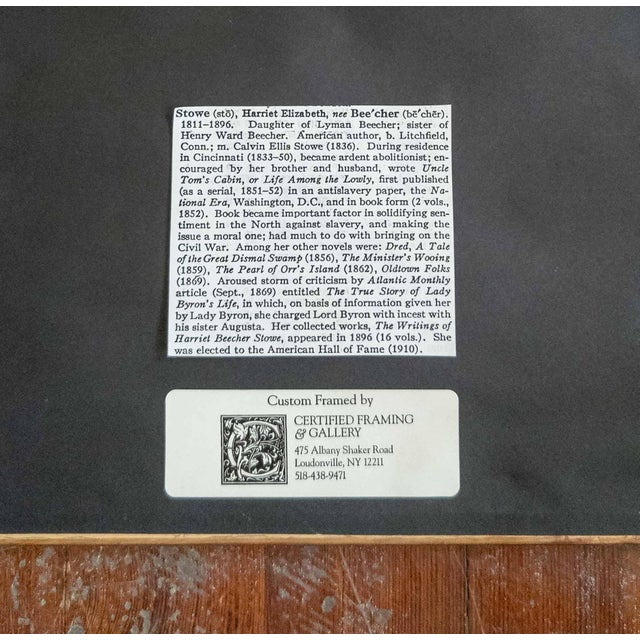 Stowe (stō), Harriet Elizabeth, nee Bee'cher (bē'chẽr).
1811–1896. Daughter of Lyman Beecher; sister of
Henry Ward Beecher. American author, b. Litchfield,
Conn.; m. Calvin Ellis Stowe (1836). During residence
in Cincinnati (1833–50), became ardent abolitionist; en-
couraged by her brother and husband, wrote Uncle
Tom's Cabin, or Life Among the Lowly, first published
(as a serial, 1851–52) in an antislavery paper, the Na-
tional Era, Washington, D.C., and in book form (2 vols.,
1852). Book became important factor in solidifying sen-
timent in the North against slavery, and making the
issue a moral one; had much to do with bringing on the
Civil War. Among her other novels were: Dred, A Tale
of the Great Dismal Swamp (1856), The Minister's Wooing
(1859), The Pearl of Orr's Island (1862), Oldtown Folks
(1869). Aroused storm of criticism by Atlantic Monthly
article (Sept., 1869) entitled The True Story of Lady
Byron's Life, in which, on basis of information given her
by Lady Byron, she charged Lord Byron with incest with
his sister Augusta. Her collected works, The Writings of
Harriet Beecher Stowe, appeared in 1896 (16 vols.). She
was elected to the American Hall of Fame (1910).
Custom Framed by
CERTIFIED FRAMING
& GALLERY
475 Albany Shaker Road
Loudonville, NY 12211
518-438-9471